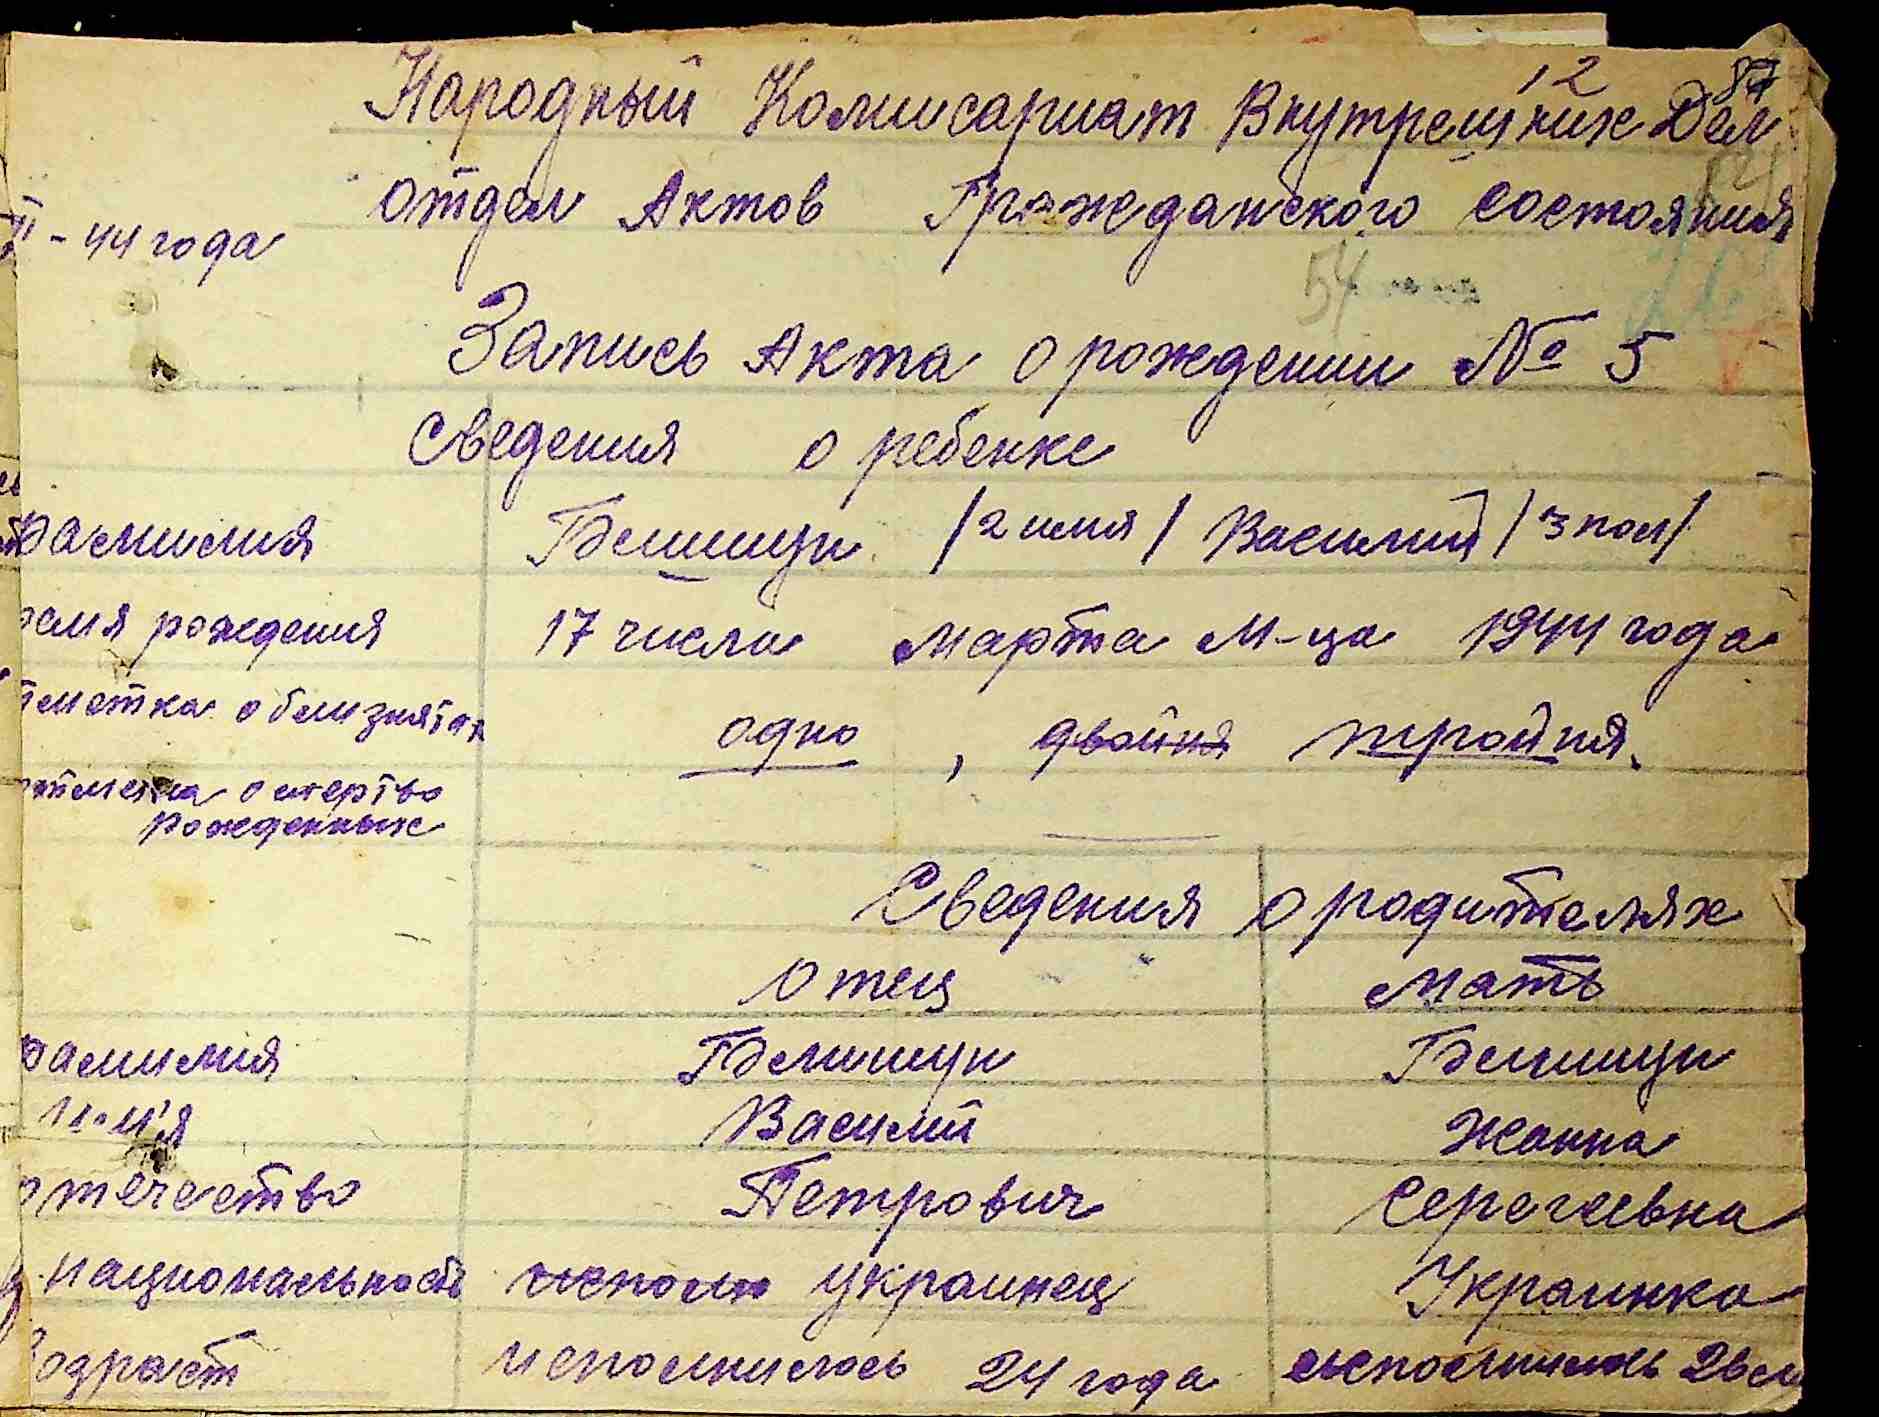 12 87
Народный Комисариат Внутренних Дел
отдел Актов Гражданского состояния
-44 года
54
Запись Акта о рождении № 5
Сведения о ребенке
фамилия /2 имя/ Василий /3 пол/
ремя рождения 17 числа марта м-ца 1944 года
тметка о близнятах одно, двойня тройня.
отметка о мертво
рожденных
Сведения о родителях
отец мать
фамилия
Имя Василий Жанна
отечество Петрович Сергеевна
национальность исполн украинец Украинка
Возраст исполнилось 24 года исполнилось 26 л